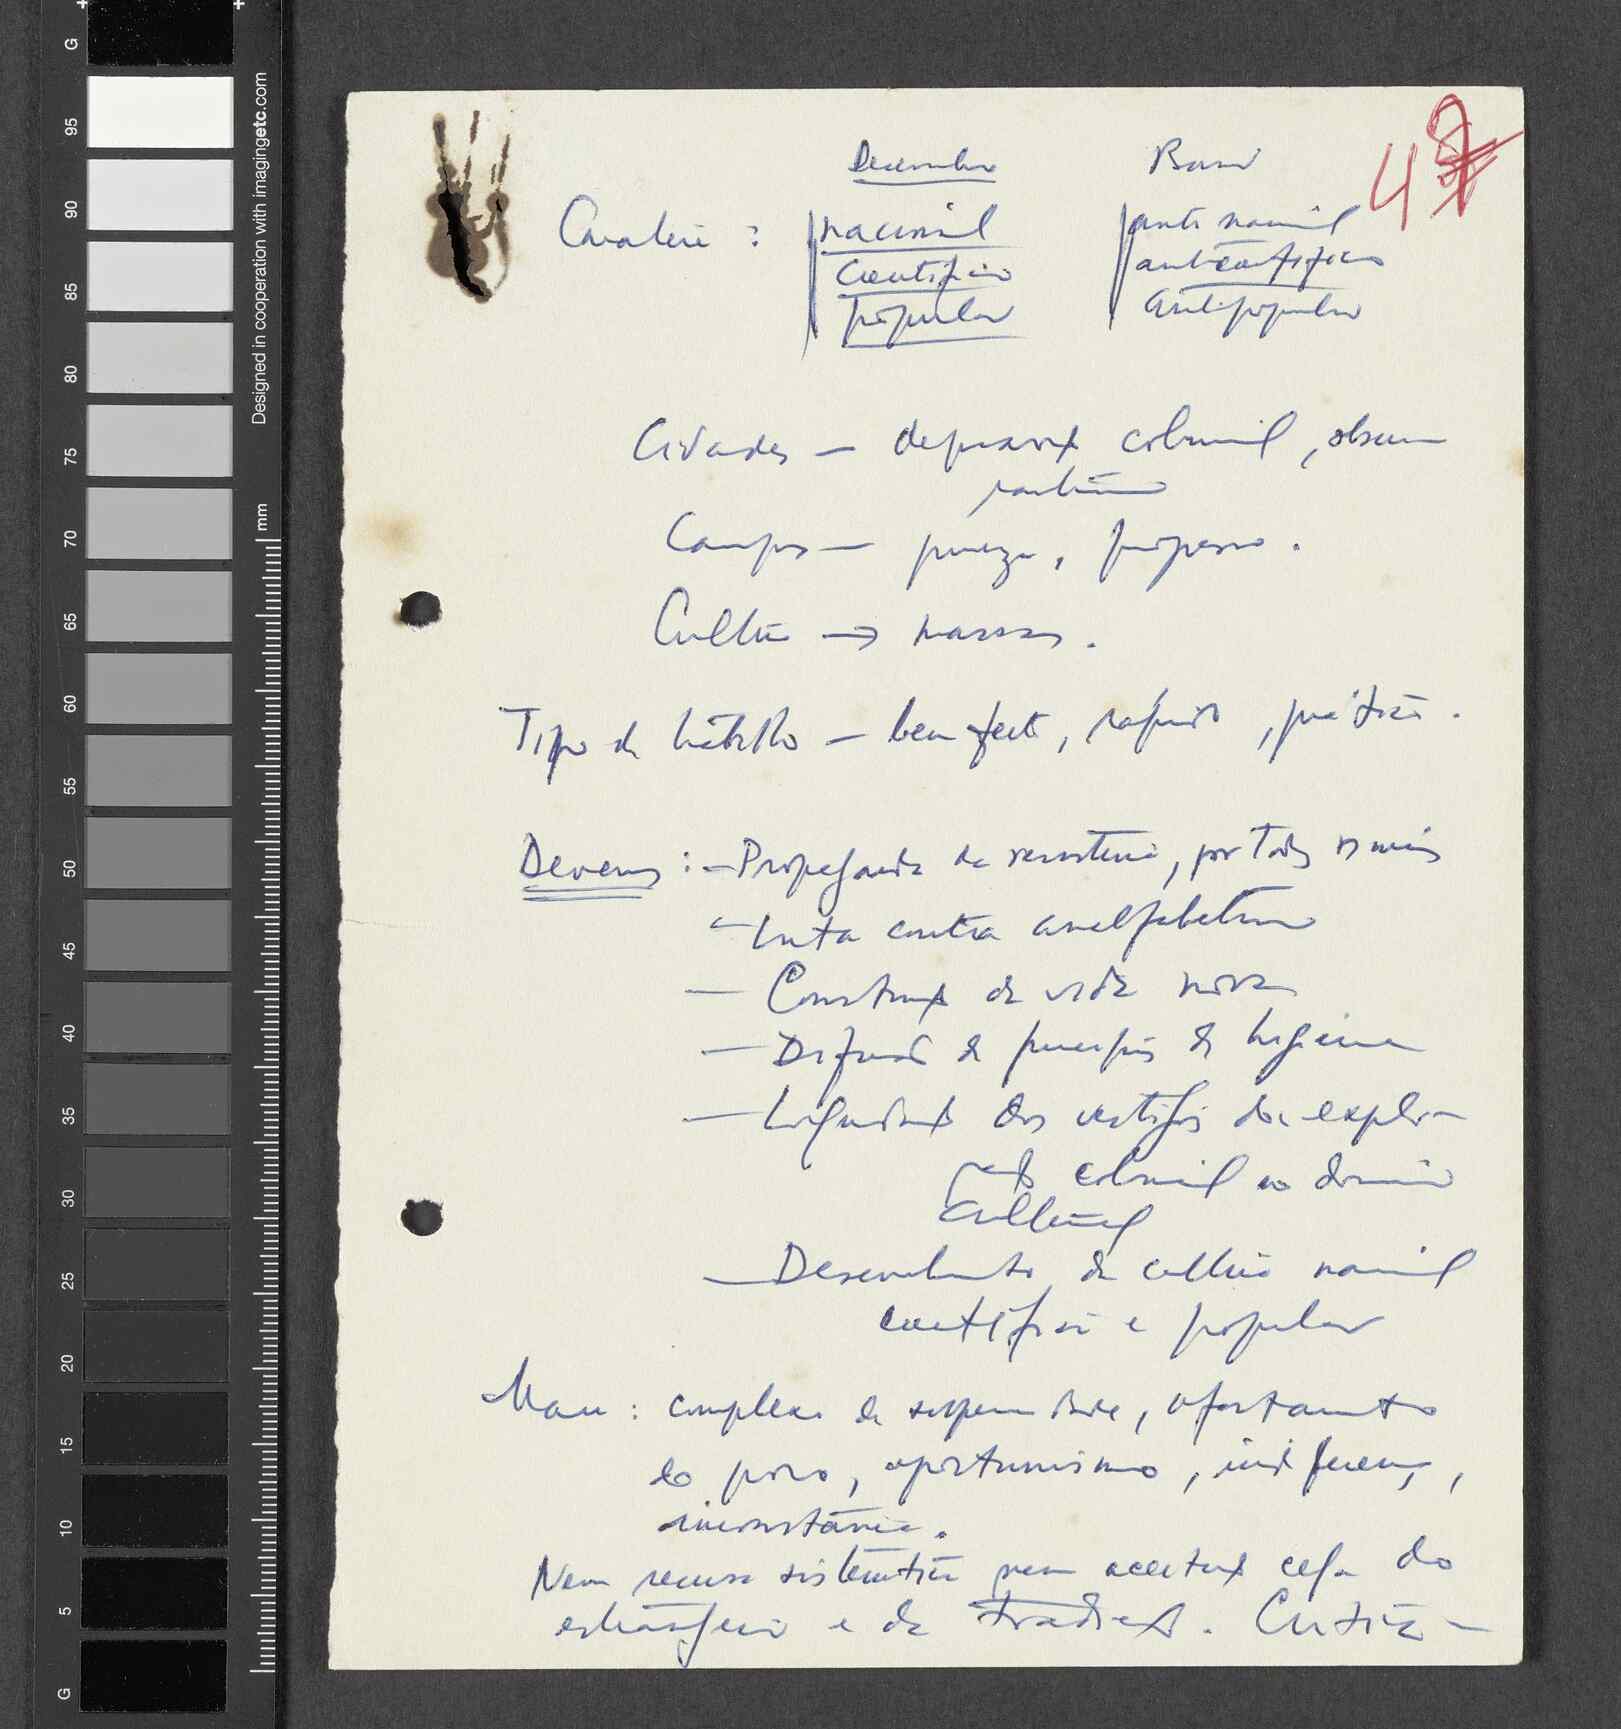 G
95
90
85
80
75
70
65
60
55
50
45
40
35
30
25
20
15
10
5
G
mm
Designed in cooperation with imagingetc.com
47
Carácter : nacional antinacional
científico anticientífico
popular antipopular
Cidades — depravação colonial, obscu-
rantismo
Campos — pureza, progresso.
Cultura → massas.
Tipo de trabalho — bem feito, rápido, prática.
Deveres : — Propaganda da resistência, por todos os meios
— Luta contra analfabetismo
— Construção da vida nova
— Difusão de princípios de higiene
— Liquidação dos vestígios da explo-
ração colonial no domínio
cultural
— Desenvolvimento da cultura nacional
científica e popular
complexo de superioridade, afastamento
do povo, oportunismo, indiferença,
inconstância.
Nem recusa sistemática nem aceitação cega do
estrangeiro e da tradição. Crítica —